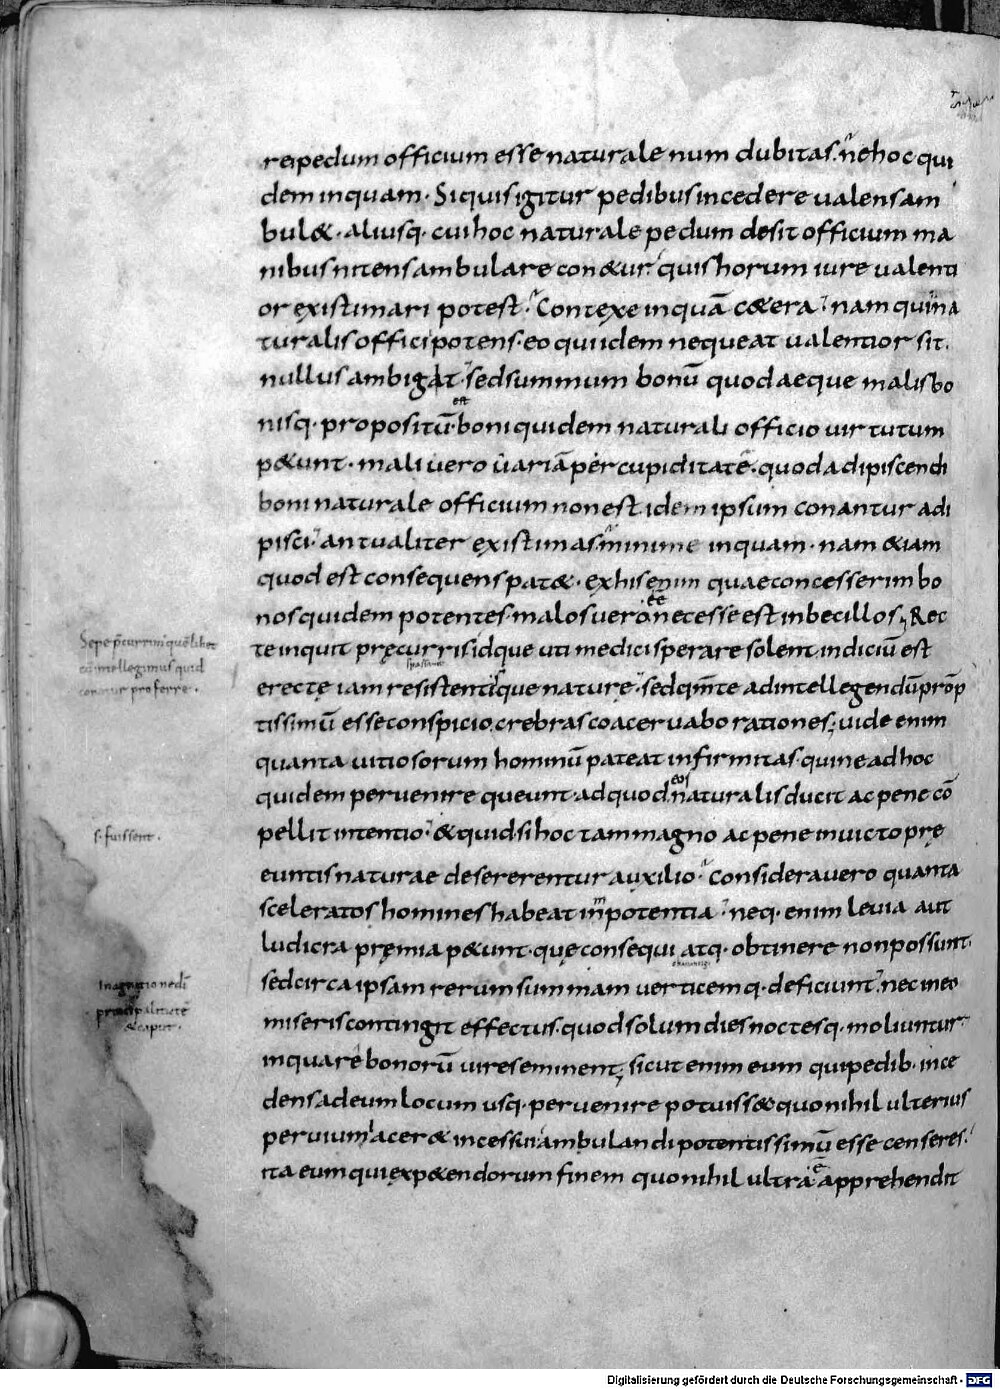 rei pedum officium esse naturale num dubitas. ne hoc qui
dem inquam. Siquis igitur pedibus incedere valens am
bul&. aliusq. cui hoc naturale pedum desit officium ma
nibus nitens ambulare con&ur. quis horum iure valenti
or existimari potest. Contexe inquā c&era. nam quin na
turalis officii potens. eo qui idem nequeat valentior sit.
nullus ambigat. sed summum bonū quod aeque malis bo
est
nisq. propositū. boni quidem naturali officio virtutum
p&unt. mali vero variā per cupiditatē. quod adipiscendi
boni naturale officium non est idem ipsum conantur adi
pisci. an tu aliter existimas. minime inquam. nam &iam
quod est consequens pat&. ex his enim quae concesserim bo
nos quidem potentes. malos vero necesse est inbecillos; Rec
ēē
te inquit pręcurris idque uti medici sperare solent indiciū est
erectę iam resistentisque naturę. sed qm̄ te ad intellegendū prōp
tissimū esse conspicio. crebras coacervabo rationes; vide enim
quanta vitiosorum hominū pateat infirmitas. qui ne ad hoc
quidem pervenire queunt. ad quod naturalis ducit ac pene cō
eos
pellit intentio. & quid si hoc tam magno ac pene invicto prę
euntis naturae desererentur auxilio. Considera vero quanta
sceleratos homines habeat inpotentia. neq. enim levia aut
m
ludicra pręmia p&unt. quę consequi atq. obtinere non possunt.
sed circa ipsam rerum summam verticemq. deficiunt. nec in eo
miseris contingit effectus. quod solum dies noctesq. moliuntur
in qua re bonorū vires eminent; sicut enim eum qui pedib. ince
dens ad eum locum usq. pervenire potuiss& quo nihil ulterius
pervium iacer& incessui ambulandi potentissimū esse censeres.
ita eum qui exp&endorum finem quo nihil ultra ē apprehendit
Sepe p̄currim quēlibet
cū intellegimus quid
conatur proferre.
s. fuissent.
In agnitione dī
principalitatē
& caput.
Digitalisierung gefördert durch die Deutsche Forschungsgemeinschaft - DFG